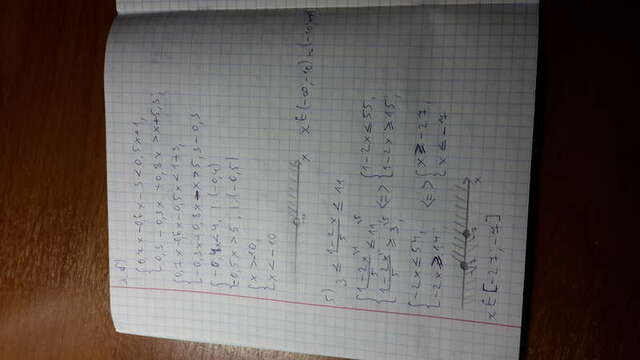 б)
{0,7x-0,6x-3<0,5x+1,
{0,3-0,3x+0,8x>x+5,3;
{0,7x-0,6x-0,5x<1+3,
{-0,3x+0,8x-x>5,3-0,3
{-0,4x<4, |:(-0,4)
{-0,5x>5, |:(-0,5)
{x>-10,
{x<-10
x
5)
3≤(1-2x)/5≤11
{(1-2x)/5≤11, <=> {1-2x≤55,
{(1-2x)/5≥3, {1-2x≥15,
{-2x≤54, <=> {x≥-27,
{-2x≥14 {x≤-7
x
x∈[-27,-7]